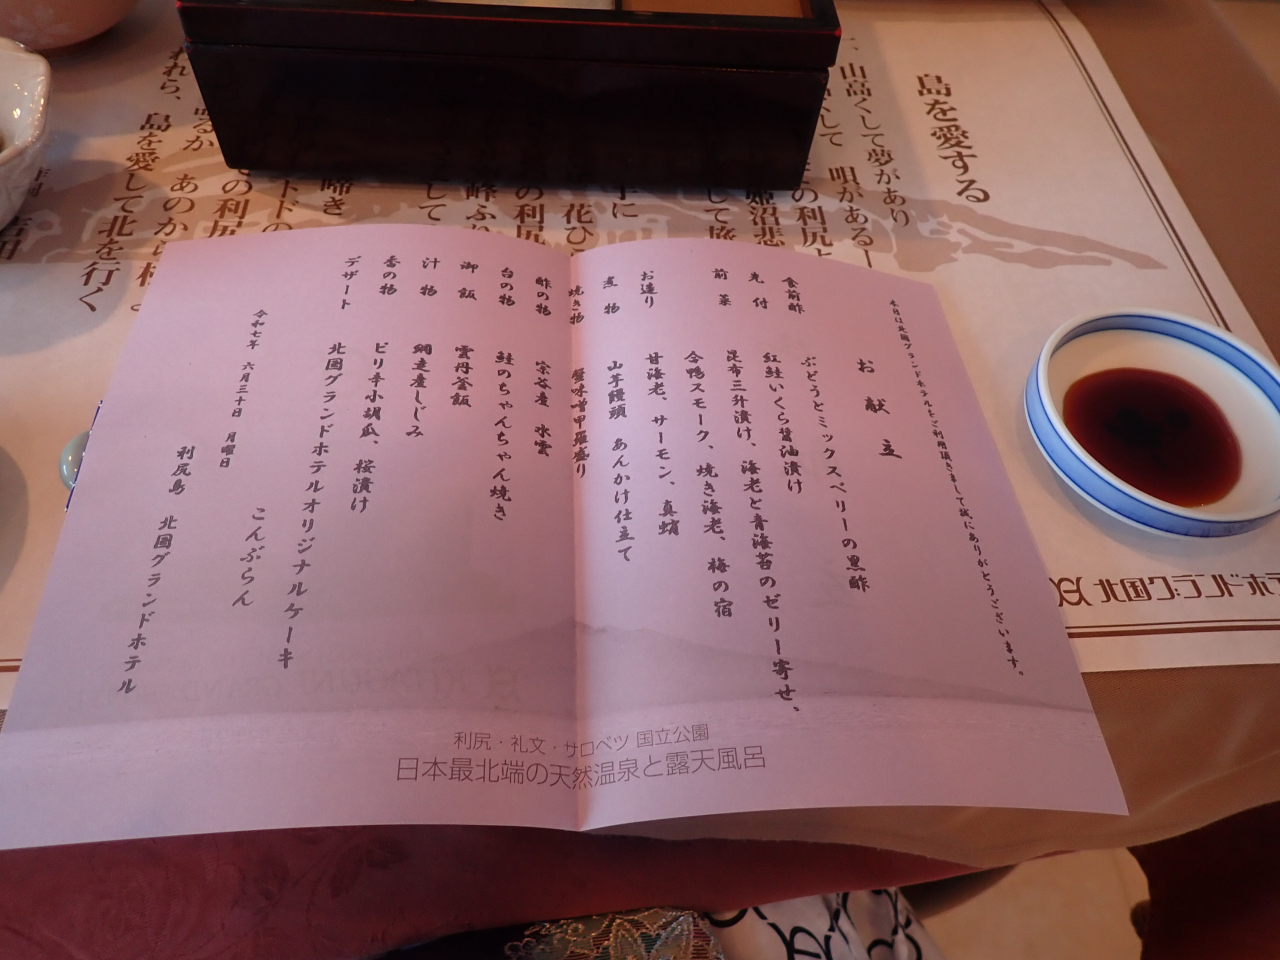 本日は北国グランドホテルをご利用頂きまして誠にありがとうございます。
お献立
食前酢 ぶどうとミックスベリーの黒酢
先付 紅鮭いくら醤油漬け
昆布三升漬け、海老と青海苔のゼリー寄せ、
前菜 合鴨スモーク、焼き海老、梅の宿
お造り 甘海老、サーモン、真蛸
煮物 山芋饅頭 あんかけ仕立て
焼き物 蟹味噌甲羅盛り
酢の物 宗谷産 水雲
台の物 鮭のちゃんちゃん焼き
御飯 雲丹釜飯
汁物 網走産しじみ
香の物 ピリ辛小胡瓜、桜漬け
デザート 北国グランドホテルオリジナルケーキ
こんぶらん
令和七年 六月三十日 月曜日
利尻島 北国グランドホテル
利尻・礼文・サロベツ 国立公園
日本最北端の天然温泉と露天風呂
島を愛する
山高くして夢があり
唄がある
姫沼悲
の利尻
花ひ
峰ふ
して
啼き
ドの
の利尻
あのから
島を愛して北を行く
われら、
北国グランドホテ